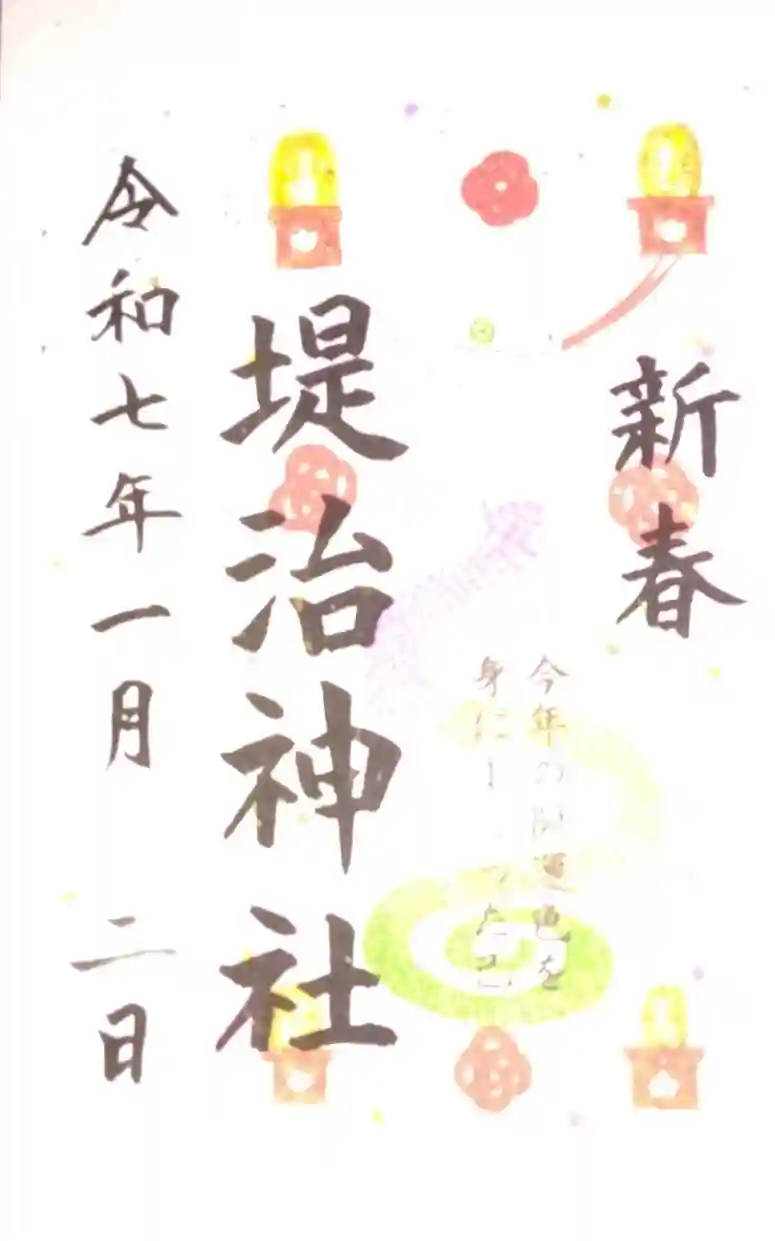 新春
今年の開運色を
身に
堤治神社
令和七年一月 二日